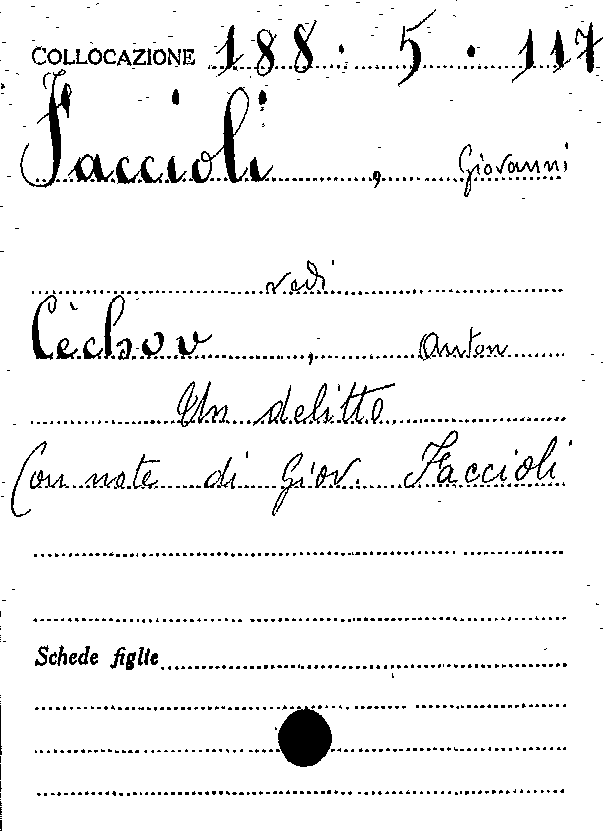 COLLOCAZIONE 188. 5. 117
Faccioli, Giovanni
vedi
Cèchov, Anton
Un delitto
Con note di Giov. Faccioli
Schede figlie